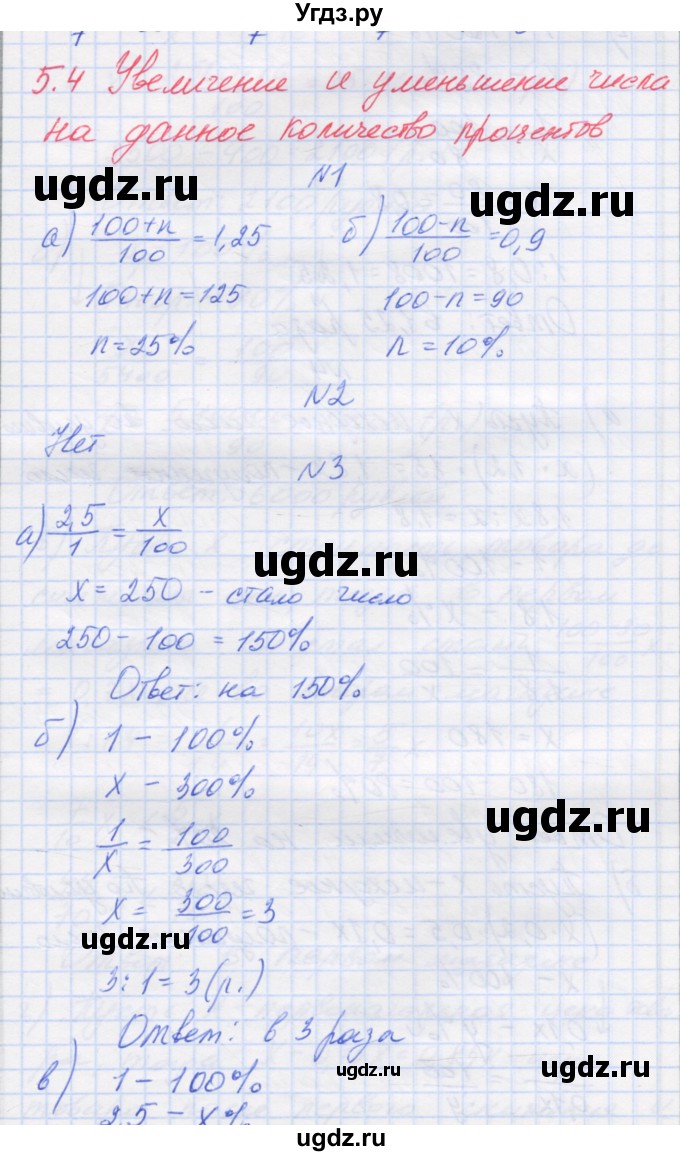 Угдз.ру
5.4 Увеличение и уменьшение числа
на данное количество процентов
ugdz.ru
ugdz.ru
N1
а) (100+n)/100 = 1,25 б) (100-n)/100 = 0,9
100+n=125 100-n=90
n=25% n=10%
ugdz.ru
ugdz.ru
N2
Нет
N3
а) 2,5/1 = x/100
ugdz.ru
x = 250 - стало число
250 - 100 = 150%
Ответ: на 150%
б) 1 - 100%
x - 300%
ugdz.ru
1/x = 100/300
x = 300/100 = 3
ugdz.ru
3:1=3(р.)
Ответ: в 3 раза
ugdz.ru
ugdz.ru
в) 1 - 100%
2,5 - x%
ugdz.ru